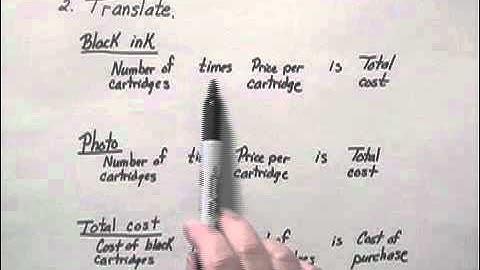 2. Translate.
Black ink
Number of times Price per is Total
cartridges cartridge cost
Photo
Number of Price per is Total
cartridges cartridge cost
Total cost
Cost of black of is Cost of
cartridges purchase